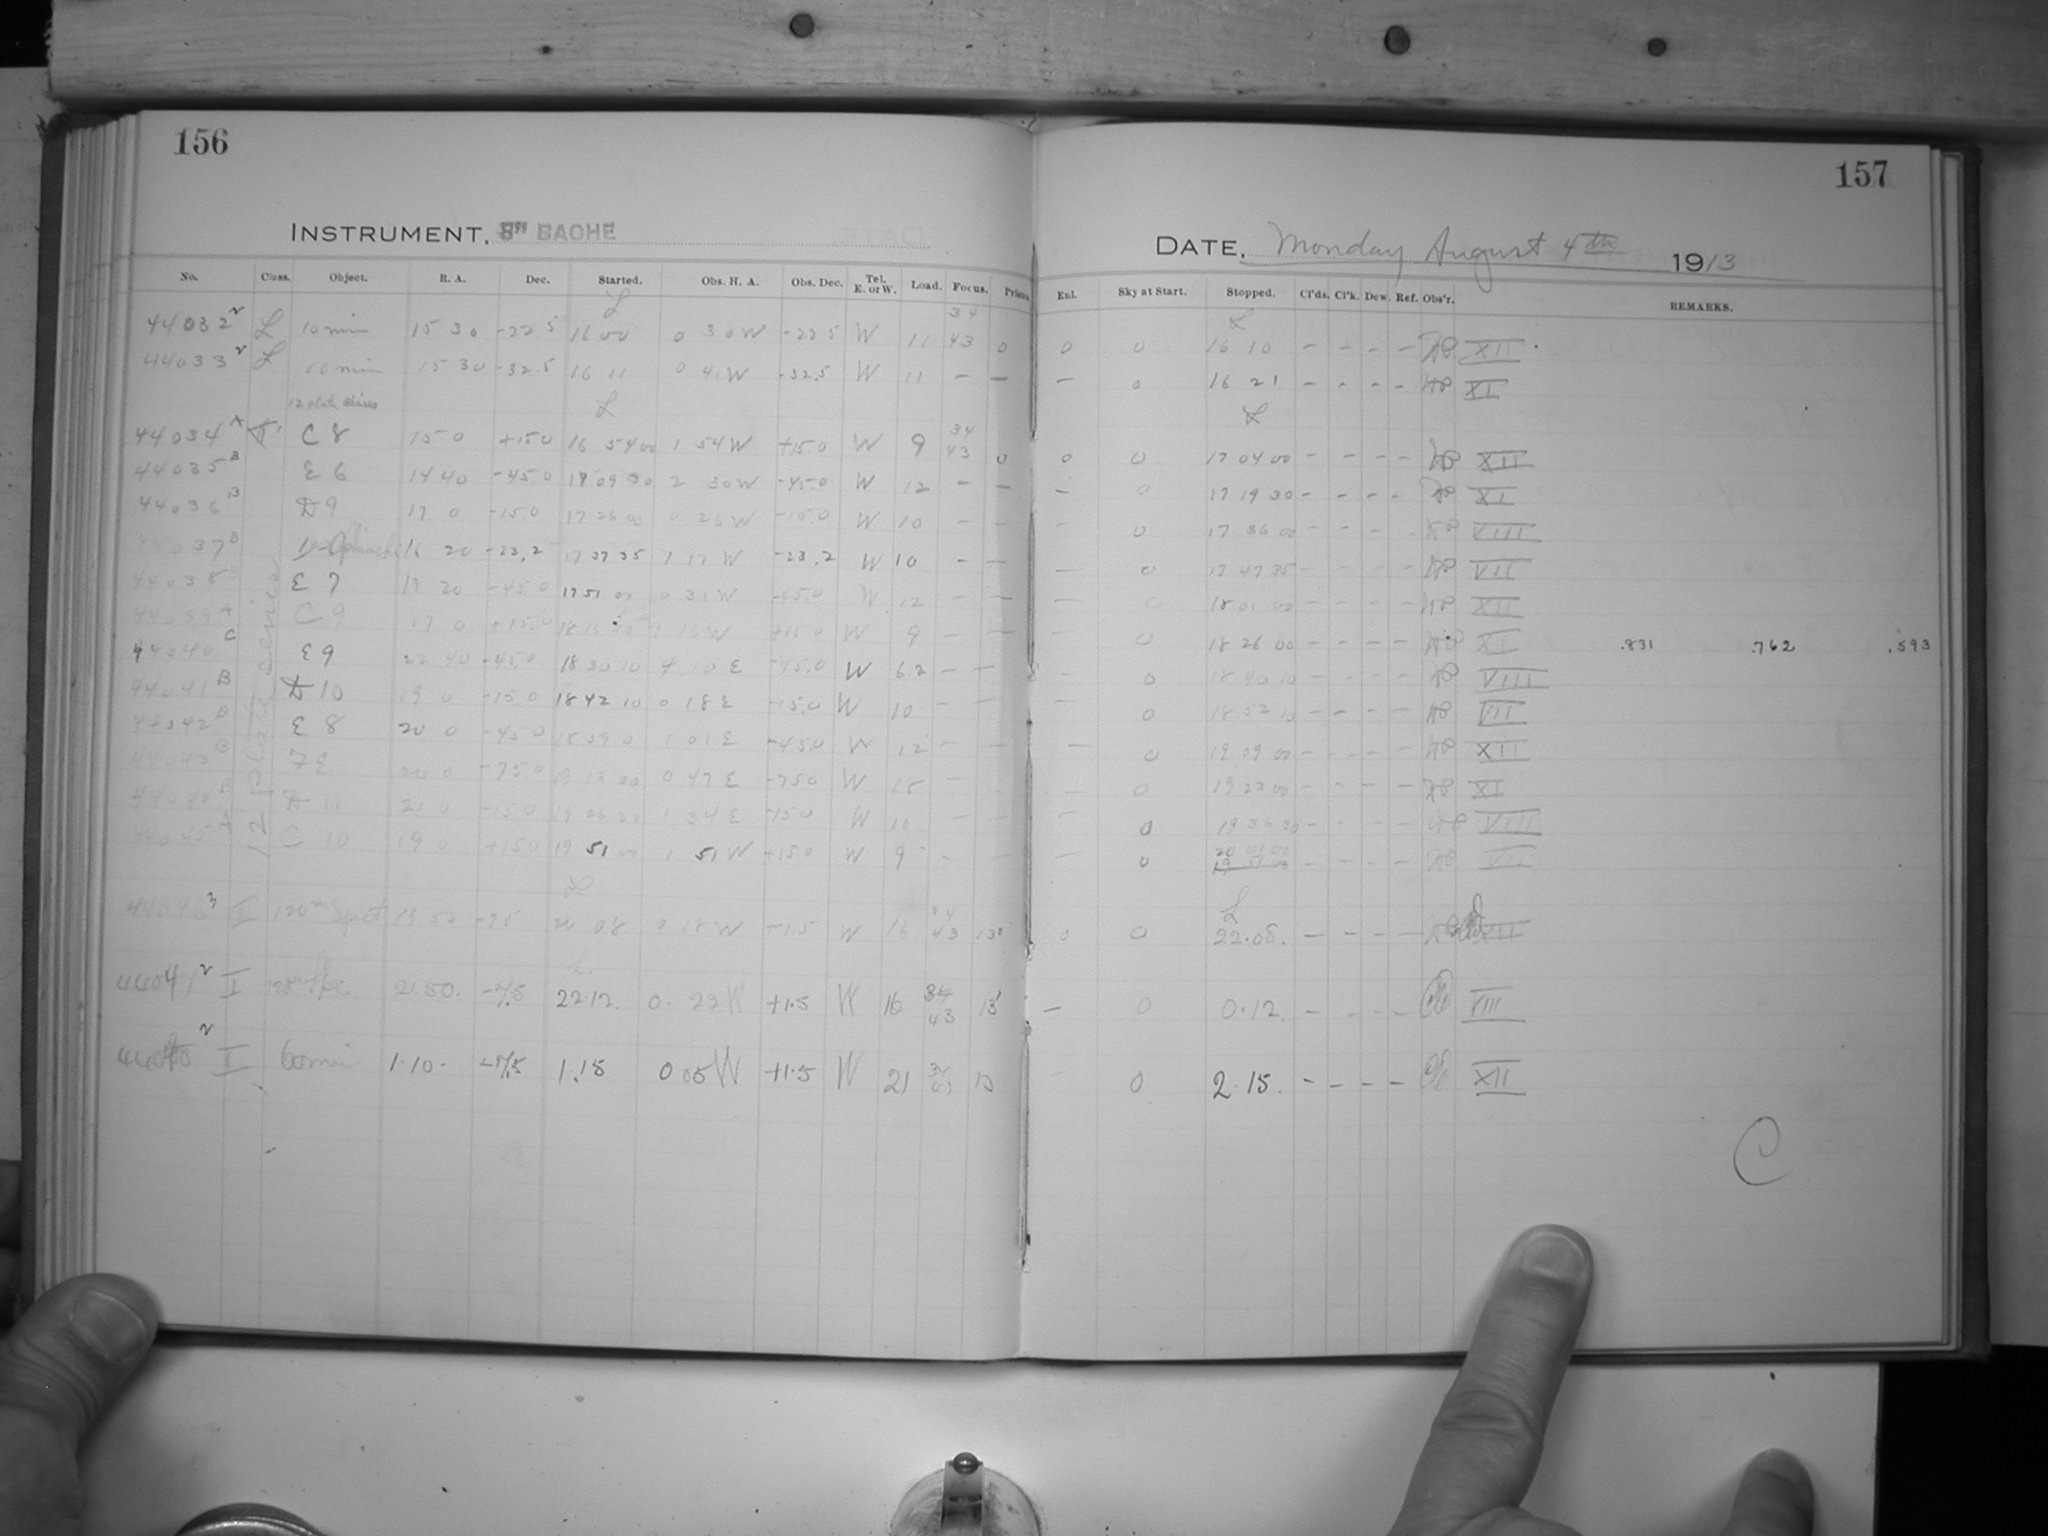 156
157
INSTRUMENT, 8" BACHE
DATE, Monday August 4th 1913
No. Class. Object. R. A. Dec. Started. Obs. H. A. Obs. Dec. Tel. E. or W. Load. Focus. Prism. Enl. Sky at Start. Stopped. Cl'ds. Cl'k. Dew. Ref. Obs'r. REMARKS.
44032 L 10 min 15 30 -22.5 16 00 0 30 W -22.5 W 11 34 43 0 0 0 16 10 - - - - XII
44033 L 10 min 15 30 -32.5 16 11 0 41 W -32.5 W 11 - - - 0 16 21 - - - - XI
12 plate series
44034 A C 8 15 0 +15.0 16 54 00 1 54 W +15.0 W 9 34 43 0 0 0 17 04 00 - - - - XII
44035 B E 6 14 40 -45.0 17 09 30 2 30 W -45.0 W 12 - - - 0 17 19 30 - - - - XI
44036 B D 9 17 0 -15.0 17 26 00 0 26 W -15.0 W 10 - - - 0 17 36 00 - - - - VIII
44037 B 16 20 -23.2 17 37 35 1 17 W -23.2 W 10 - - - 0 17 47 35 - - - - VII
44038 E 7 17 20 -45.0 17 51 00 0 31 W -45.0 W 12 - - - 0 18 01 00 - - - - XII
44039 A C 9 17 0 +15.0 W 9 - - - 0 18 26 00 - - - - XI .831 .762 .593
44040 C E 9 22 40 -45.0 18 30 10 4 10 E -45.0 W 6.2 - - 0 18 40 10 - - - - VIII
44041 B D 10 19 0 -15.0 18 42 10 0 18 E -15.0 W 10 - - - 0 18 52 10 - - - - VII
44042 B E 8 20 0 -45.0 18 59 0 1 01 E -45.0 W 12 - - - 0 19 09 00 - - - - XII
44043 B 20 0 -75.0 19 13 00 0 47 E -75.0 W 18 - - - 0 19 23 00 - - - - XI
44044 B D 11 21 0 -15.0 19 26 30 1 34 E -15.0 W 10 - - - 0 19 36 30 - - - - VIII
44045 A C 10 19 0 +15.0 19 51 00 51 W +15.0 W 9 - - - 0 20 01 00 - - - - VII
12 plate series
44046 I 120m Spect 19 50 20 08 0 18 W W 16 43 0 0 22.08. - - - - XII
44047 I 21.50. 22.12. 0. 22 W +1.5 W 16 34 43 13 - 0 0.12. - - - - VIII
I 60 min 1.10. 1.18 0 05 W +1.5 W 21 0 2.15. - - - - XII
C